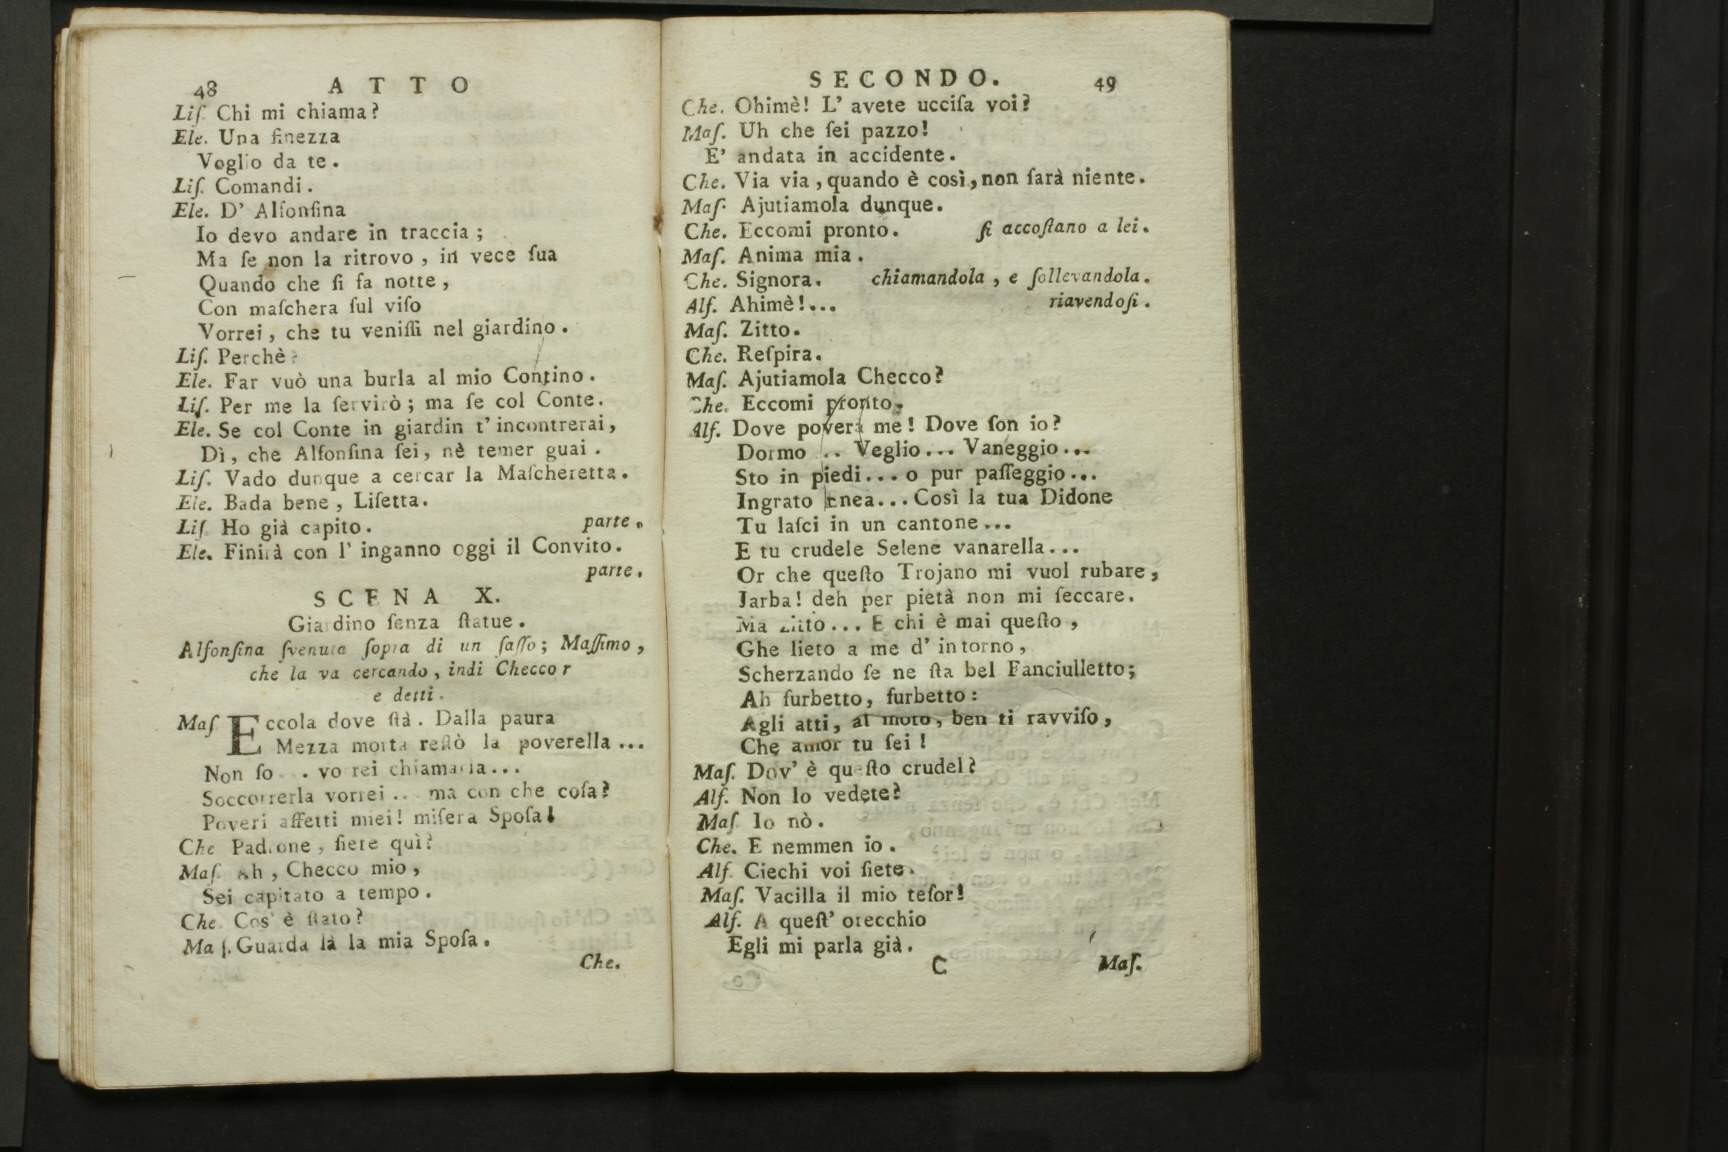 48 ATTO
Liſ. Chi mi chiama?
Ele. Una finezza
Voglio da te.
Liſ. Comandi.
Ele. D' Alfonſina
Io devo andare in traccia;
Ma ſe non la ritrovo, in vece ſua
Quando che ſi fa notte,
Con maſchera ſul viſo
Vorrei, che tu veniſſi nel giardino.
Liſ. Perchè?
Ele. Far vuò una burla al mio Contino.
Liſ. Per me la ſervirò; ma ſe col Conte.
Ele. Se col Conte in giardin t'incontrerai,
Dì, che Alfonſina ſei, nè temer guai.
Liſ. Vado dunque a cercar la Maſcheretta.
Ele. Bada bene, Liſetta.
Liſ. Ho già capito. parte.
Ele. Finirà con l' inganno oggi il Convito.
parte.
SCENA X.
Giardino ſenza ſtatue.
Alfonſina ſvenuta ſopra di un ſaſſo; Maſſimo,
che la va cercando, indi Checco r
e detti.
Maſ. Eccola dove ſtà. Dalla paura
Mezza morta reſtò la poverella...
Non ſo... vorrei chiamarla...
Soccorrerla vorrei... ma con che coſa?
Poveri affetti miei! miſera Spoſa!
Che Padrone, ſiete quì?
Maſ. Ah, Checco mio,
Sei capitato a tempo.
Che. Cos' è ſtato?
Maſ. Guarda là la mia Spoſa.
Che.
SECONDO. 49
Che. Ohimè! L' avete ucciſa voi?
Maſ. Uh che ſei pazzo!
E' andata in accidente.
Che. Via via, quando è così, non ſarà niente.
Maſ. Ajutiamola dunque.
Che. Eccomi pronto. ſi accoſtano a lei.
Maſ. Anima mia.
Che. Signora. chiamandola, e ſollevandola.
Alf. Ahimè!... riavendoſi.
Maſ. Zitto.
Che. Reſpira.
Maſ. Ajutiamola Checco?
Che. Eccomi pronto.
Alf. Dove povera me! Dove ſon io?
Dormo... Veglio... Vaneggio...
Sto in piedi... o pur paſſeggio...
Ingrato Enea... Così la tua Didone
Tu laſci in un cantone...
E tu crudele Selene vanarella...
Or che queſto Trojano mi vuol rubare,
Jarba! deh per pietà non mi ſeccare.
Ma zitto... E chi è mai queſto,
Ghe lieto a me d' intorno,
Scherzando ſe ne ſta bel Fanciulletto;
Ah furbetto, furbetto:
Agli atti, al moto, ben ti ravviſo,
Che amor tu ſei!
Maſ. Dov' è queſto crudel?
Alf. Non lo vedete?
Maſ. Io nò.
Che. E nemmen io.
Alf. Ciechi voi ſiete.
Maſ. Vacilla il mio teſor!
Alf. A queſt' orecchio
Egli mi parla già.
C Maſ.